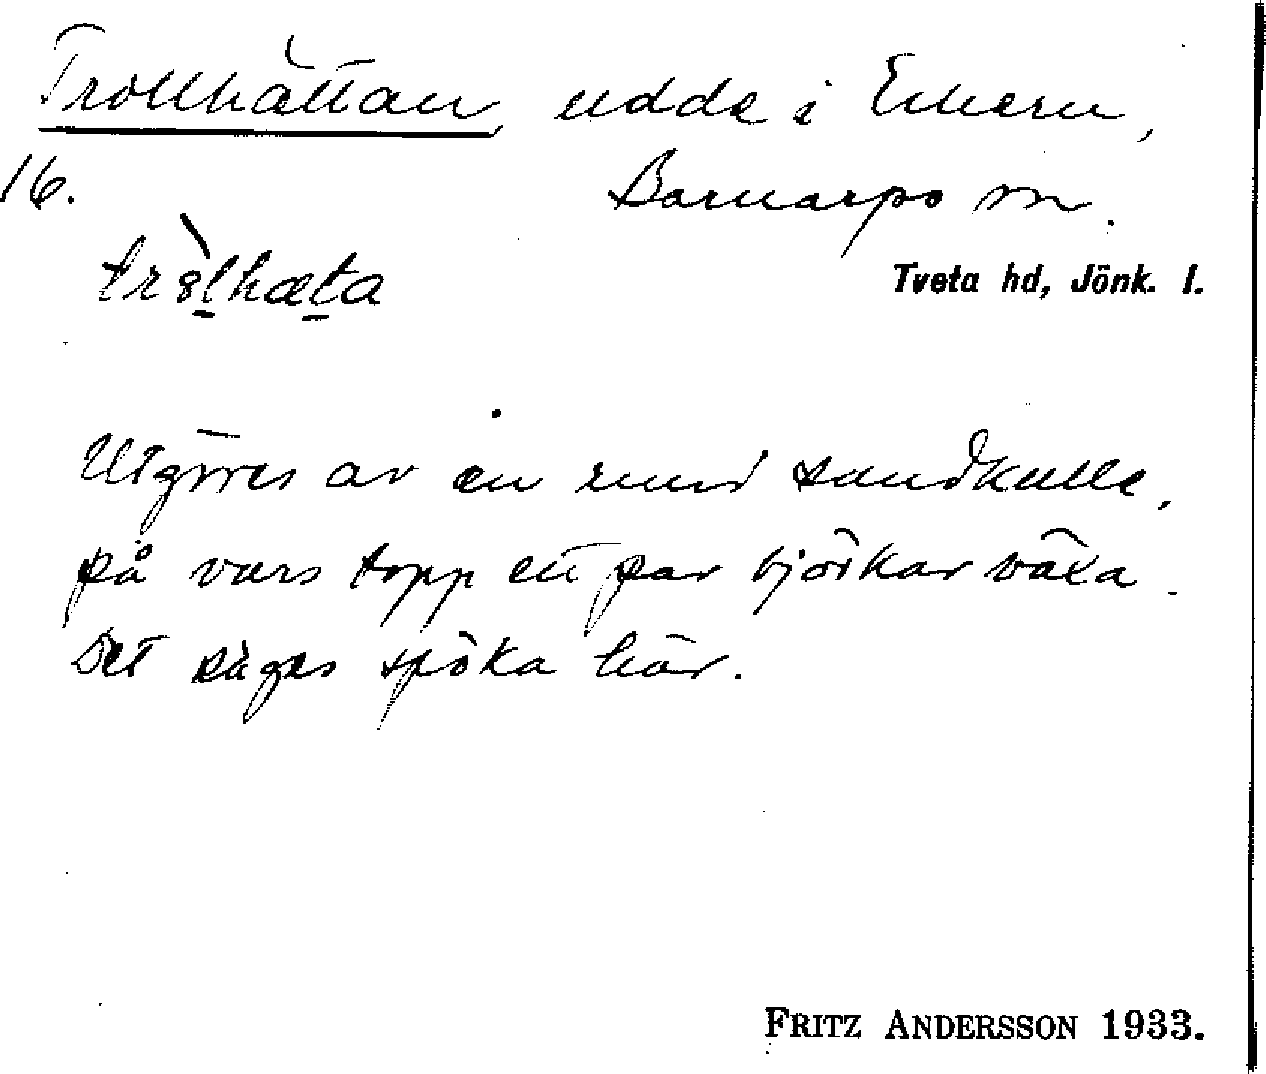 Trollhättan, udde i Eckern,
16. Barnarps sn.
trolhæta
Tveta hd, Jönk. l.
Utgöres av en rund sandkulle,
på vars topp ett par björkar växa.
Det säges spöka här.
FRITZ ANDERSSON 1933.